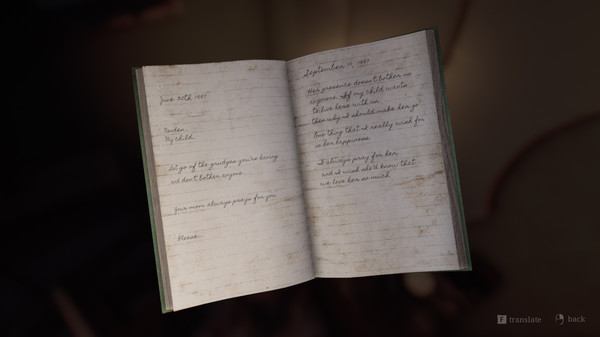 June 30th 1987
My Child.
let go of the grudges you're having
and don't bother anyone.
Your mom always prays for you
Please
September 1987
Her presence doesn't bother us
anymore. If my child wants
to live here with us,
then why I should make her go
One thing that I really wish for
is her happiness
I always pray for her,
and I wish she'd know that
we love her so much
F translate
back